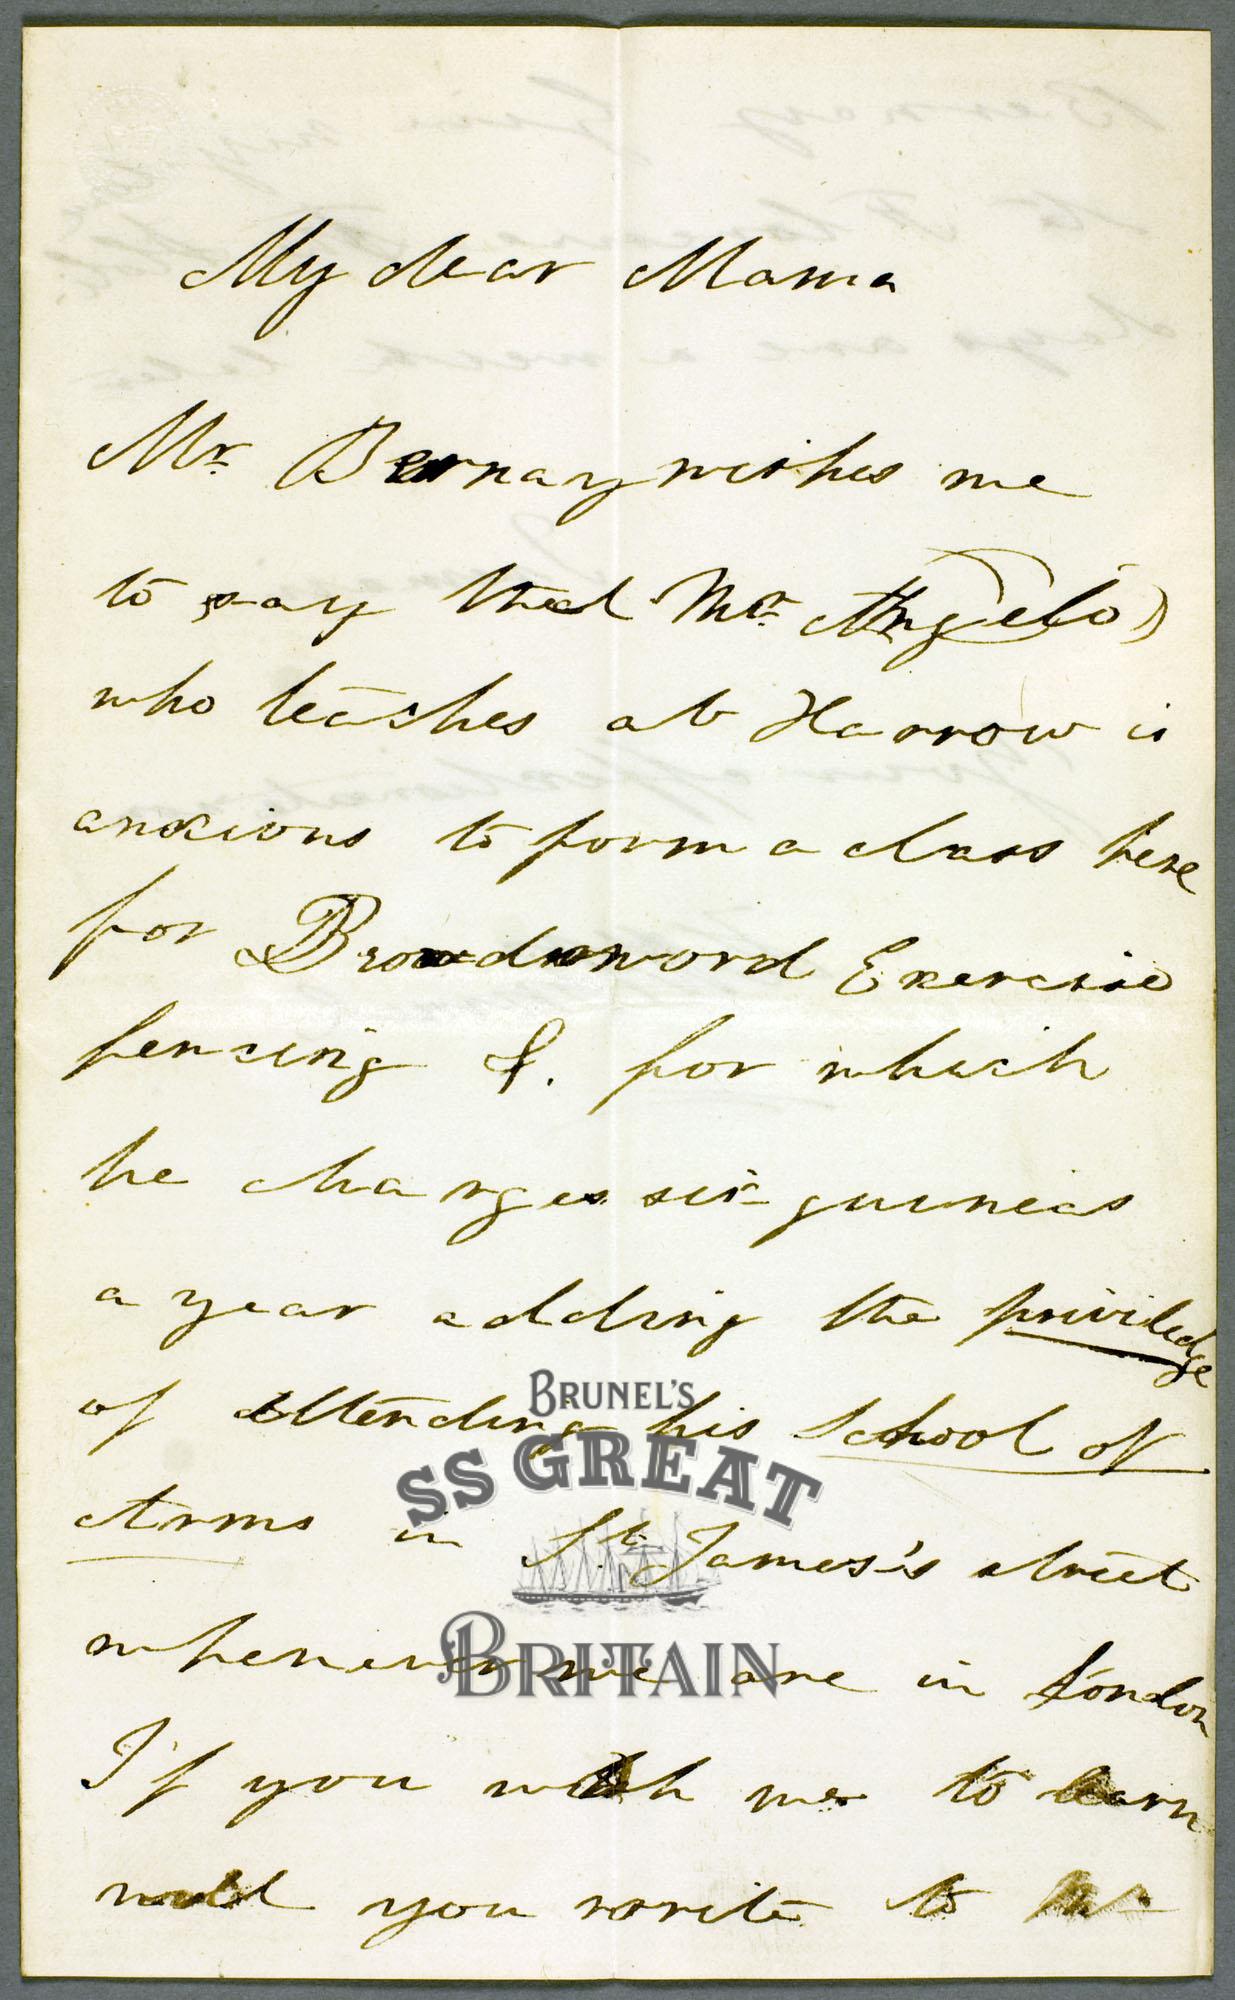 My dear Mama
Mr. Bernay wishes me
to say that Mr. Angelo)
who teaches at Harrow is
anxious to form a class here
for Broadsword Exercise
fencing &. for which
he charges six guineas
a year adding the priviledge
of attending his School of
Arms in St. James's street
whenever we are in London
If you wish me to learn
would you write to Mr
BRUNEL'S
SS GREAT
BRITAIN